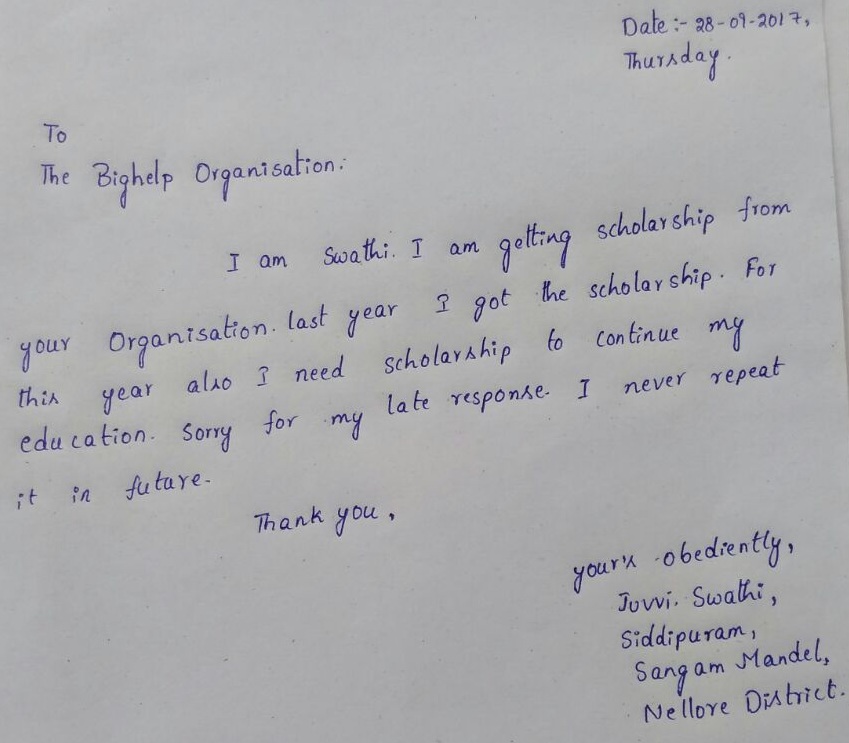 Date :- 28-09-2017,
Thursday.
To
The Bighelp Organisation:
I am Swathi. I am getting scholarship from
your Organisation. last year I got the scholarship. For
this year also I need scholarship to continue my
education. Sorry for my late response. I never repeat
it in future.
Thank you,
your's obediently,
Juvvi. Swathi,
Siddipuram,
Sangam Mandel,
Nellore District.